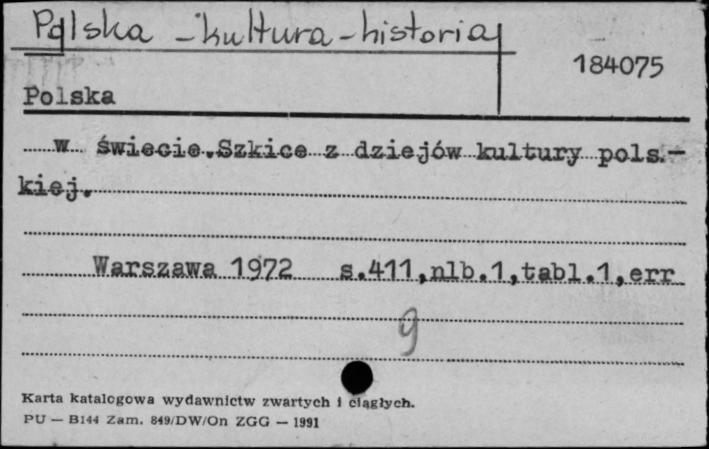 Polska - kultura - historia
184075
Polska
w świecie.Szkice z dziejów kultury pols.-
kiej.
Warszawa 1972 s.411,nlb.1,tabl.1,err
g
Karta katalogowa wydawnictw zwartych i ciągłych.
PU — B144 Zam. 849/DW/On ZGG — 1991